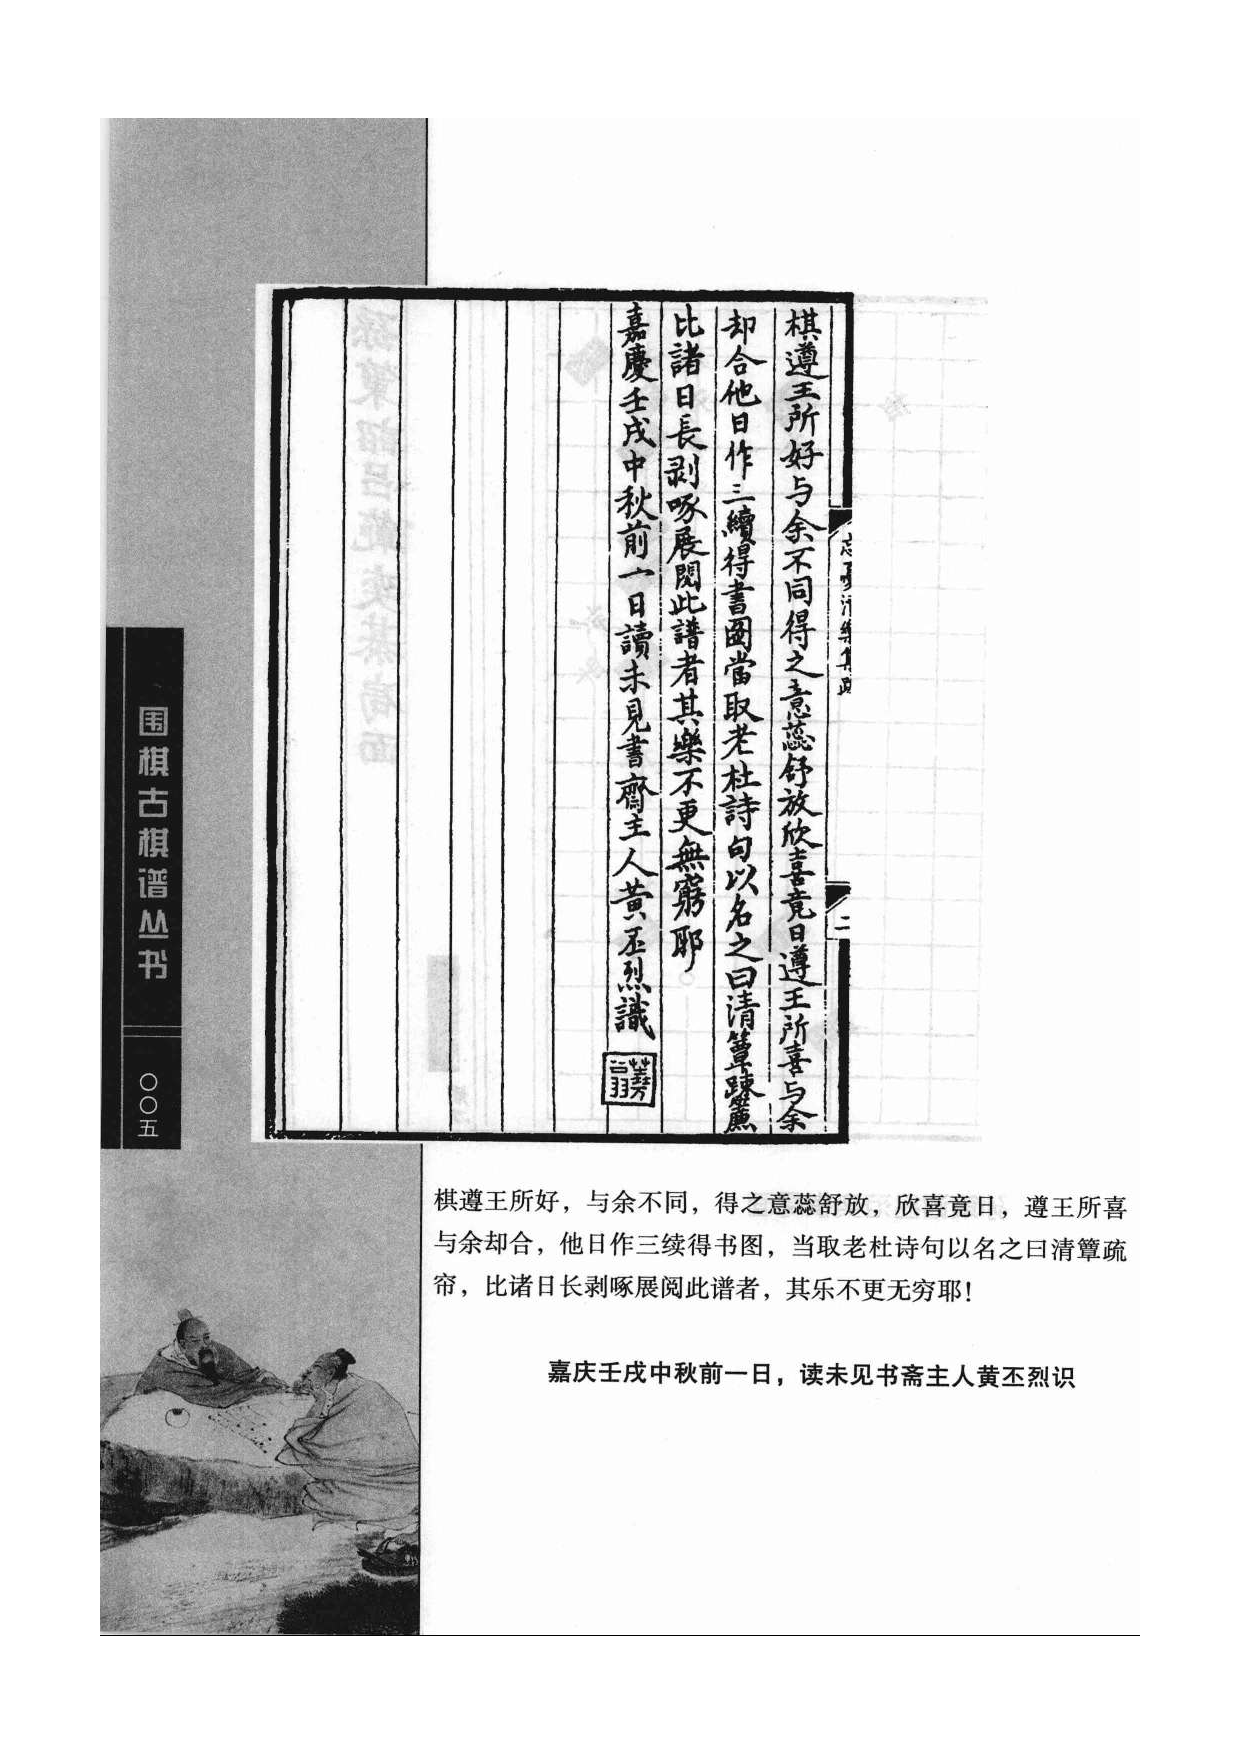 棋遵王所好与余不同得之意蕊舒放欣喜竟日遵王所喜与余
却合他日作三續得書圖當取老杜詩句以名之曰清簟踈簾
比諸日長剥啄展閱此譜者其樂不更無窮耶
嘉慶壬戌中秋前一日讀未見書齋主人黄丕烈識
忘憂清樂集跋
二
围棋古棋谱丛书
〇〇五
棋遵王所好，与余不同，得之意蕊舒放，欣喜竟日，遵王所喜
与余却合，他日作三续得书图，当取老杜诗句以名之曰清簟疏
帘，比诸日长剥啄展阅此谱者，其乐不更无穷耶！
嘉庆壬戌中秋前一日，读未见书斋主人黄丕烈识